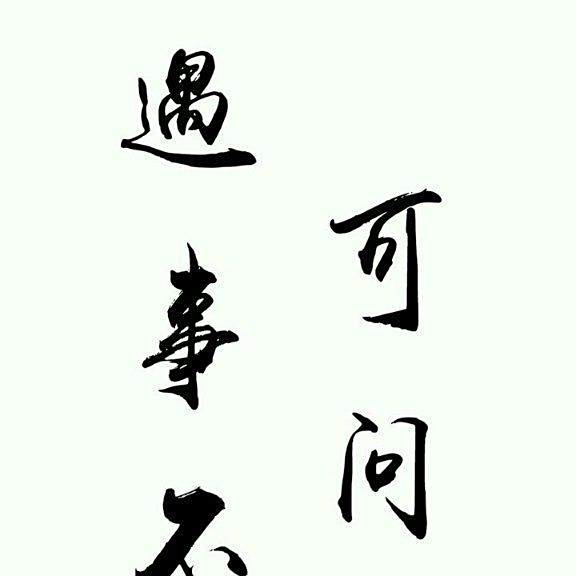 遇事不
可问